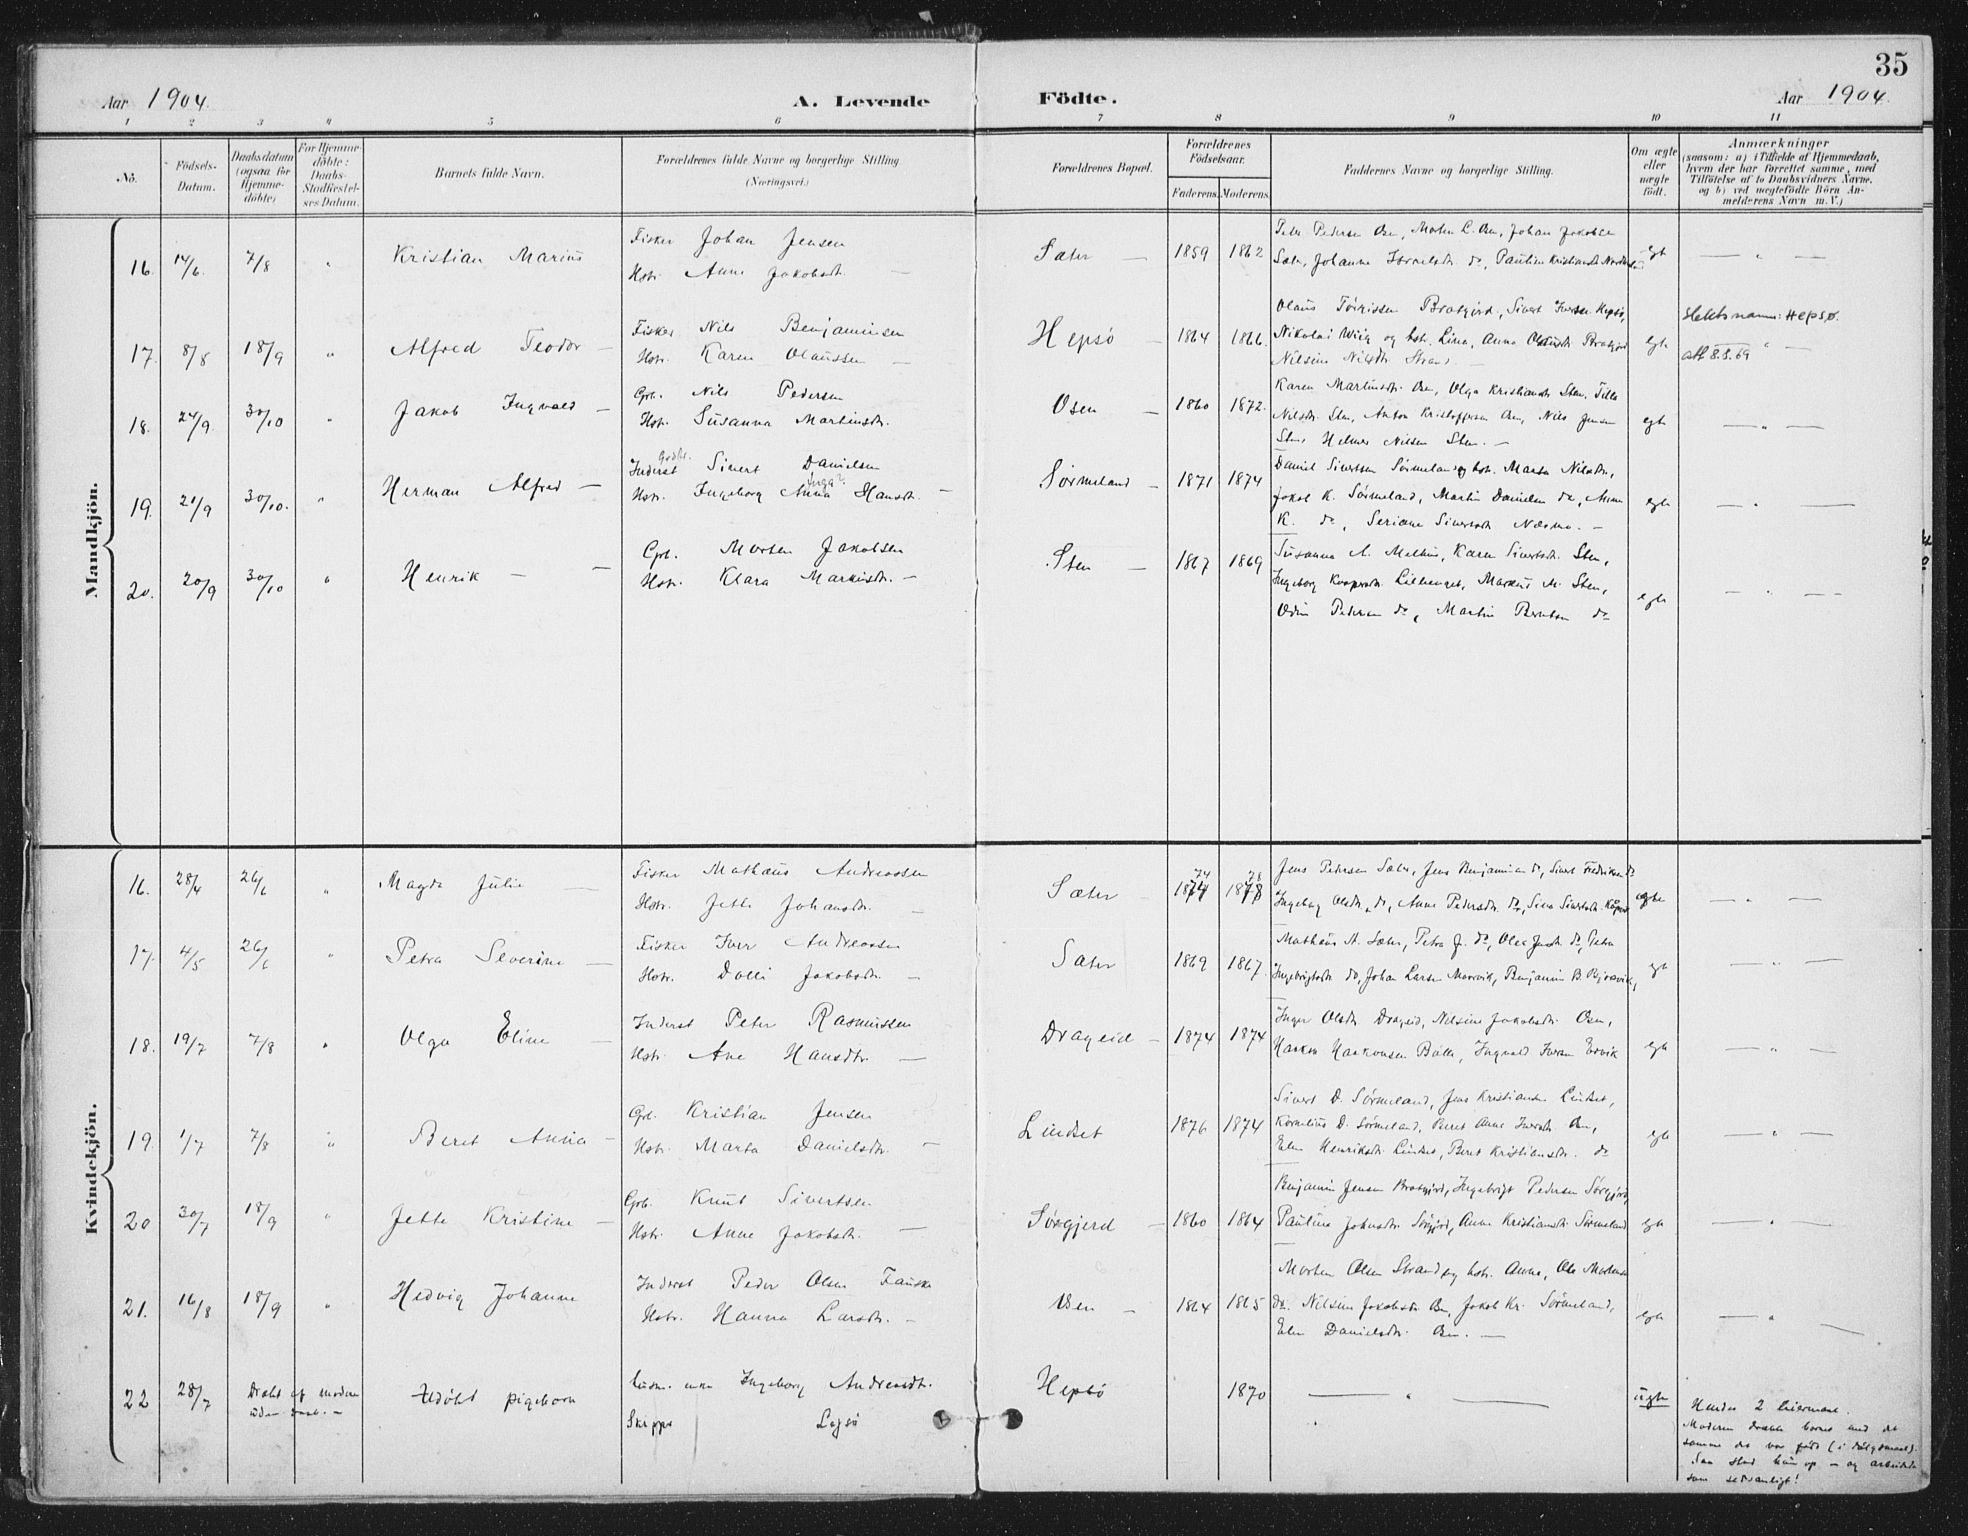 35
Aar 1904.
A. Levende
Födte.
Aar 1904.
1 2 3 4 5 6 7 8 9 10 11
No.
Födsels-
Datum.
Daabsdatum
(ogsaa for
Hjemme-
döbte)
For Hjemme-
döbte:
Daabs-
Stadfæstel-
ses Datum.
Barnets fulde Navn.
Forældrenes fulde Navne og borgerlige Stilling
(Næringsvei.)
Forældrenes Bopæl.
Forældrenes
Födselsaar.
Faderens. Moderens.
Faddernes Navne og borgerlige Stilling.
Om ægte
eller
uægte
födt.
Anmærkninger
(saasom: a) i Tilfælde af Hjemmedaab,
hvem der har forrettet samme, med
Tilföielse af to Daabsvidners Navne,
og b) ved uegtefödte Börn An-
melderens Navn m. V.)
Mandkjön.
16. 14/6. 7/8 " Kristian Marius
Fisker Johan Jensen
Hstr. Anne Jakobsdt. —
Sæter — 1859 1862
Peder Pedersen Osen, Morten L. Osen, Johan Jakobsen
Sæter, Johanna do, Pauline Kristiansdt.
egt — " —
17. 8/8 18/9 " Alfred Teodor —
Fisker Nils Benjaminsen
Hstr. Karen Olaussen —
Hepsø — 1864 1866.
Olaus Bratgjerd, Sivert Iversen Hepsø,
Nikolai Wiig og hst. Lina, Anna Bratgjerd
Nilsine Nilsdtr Strand —
egt — " —
Slektsnavn: Hepsø.
att. 8.3.69
18. 24/9. 30/10 " Jakob Ingvald —
Grb. Nils Pedersen
Hstr. Susanna Martinsdtr.
Osen — 1860 1872.
Karen Martinsdtr. Osen, Olga Kristiansdt Sten,
Nilsdt. Sten, Anton Kristoffersen Osen, Nils Jensen
Sten, Helmer Nilsen Sten. —
egt — " —
19. 21/9 30/10. " Herman Alfred —
Inderst Sivert Danielsen
Inga?
Hstr. Ingeborg Anna Hansdt. —
Sørmeland — 1871 1874
Daniel Sivertsen Sørmeland og hst. Marta Nilsdtr,
Jakob K. Sørmeland, Martin Danielsen do, Anna
K. do, Seriane Sivertsdt —
egt — " —
20. 20/9 30/10 " Henrik — —
Grb. Morten Jakobsen
Hstr. Klara Markusdt. —
Sten — 1867 1869
Susanna A. Melhus, Karen Sivertsdt. Sten,
Ingeborg Kaspersdt. Lillenget, Markus M. Sten,
Odin Pedersen do, Martin Berntsen do
egt — " —
Kvindekjön.
16. 28/4 26/6 " Magda Julie —
Fisker Mathæus Andreassen
Hstr. Jette Johansdt. —
Sæter — 1874 74 1878 78
Jens Pedersen Sæter, Jens Benjaminsen do, Sivert Fredriksen do
Ingeborg Olsdt. do, Anne Pedersdt. do, Sina Sivertsdt.
egte — " —
17. 4/5 26/6 " Petra Severine —
Fisker Iver Andreassen
Hstr. Dolli Jakobsdt. —
Sæter 1869 1867.
Mathæus A. Sæter, Petra J. do, do, Petra
Ingebrigtsdt do, Johan Larsen, Benjamin B. Bjørvik,
egt — " —
18. 19/7 7/8 " Olga Eline —
Inderst Peter Rasmussen
Hstr. Ane Hansdtr. —
Drageid — 1874 1874
Inger Olsdt Drageid, Nilsine Jakobsdt. Osen,
Haakon Haakonsen, Ingvald Iversen Ervik
egt — " —
19. 1/7 7/8 " Beret Anna —
Grb. Kristian Jensen
Hstr. Marta Danielsdtr. —
Lindset 1876 1874
Sivert D. Sørmeland, Jens Kristiansen Lindset,
Kornelius D. Sørmeland, Beret Anna Iversdt. Osen,
Elen Henriksdt. Lindset, Beret Kristiansdt. do
egt — " —
20 30/7 18/9 " Jette Kristine —
Grb. Knut Sivertsen
Hstr. Anne Jakobsdt. —
Sørgjerd — 1860 1864
Benjamin Jensen Bratgjerd, Ingebrigt Pedersen Sørgjerd,
Pauline Johnsdt. Sørgjerd, Anna Kristiansdt. Sørmeland
egt — " —
21. 16/8 18/9 " Hedvig Johanne
Inderst Peder Olsen Fauske
Hstr. Hanna Larsdt. —
Osen — 1864 1865
Morten Olsen Strand og hst. Anne, Ole Mortensen
do. Nilsine Jakobsdt. Osen, Jakob Kr. Sørmeland,
Elen Danielsdt. Osen. —
egt — " —
22 28/7 Dræbt af moderen
uden daab. — Udøbt pigebarn
Ingeborg Andreasdt.
Skipper
Hepsø 1870 — " — uegte
Hendes 2 leiermaal.
Moderen dræbte barnet med det
samme det var født (i dølgsmaal).
Saa stod hun op — og arbeidede
som sedvanligt!